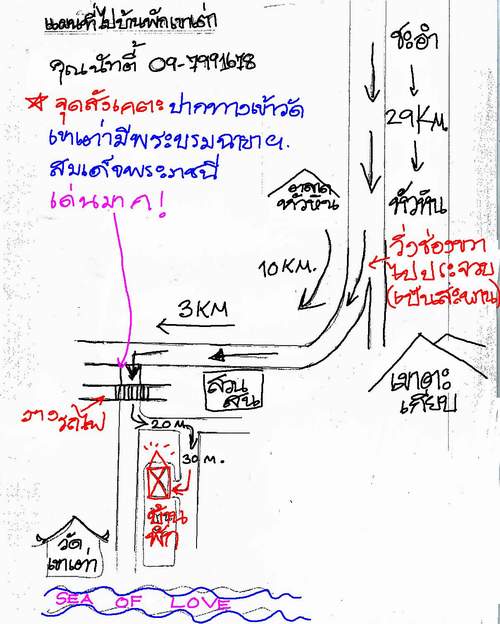 แผนที่ไปบ้านพักเขาเต่า
คุณนัทตี้ 09-7991678
จุดสังเกตะปากทางเข้าวัด
เขาเต่ามีพระบรมฉายาฯ
สมเด็จพระราชินี
เด่นมาก!
ชะอำ
29KM.
หัวหิน
ตลาด
หัวหิน
วิ่งช่องขวา
ไปประจวบ
(เป็นสะพาน)
10KM.
3KM
เขาตะ
เกียบ
สวน
สน
ราง
รถไฟ
20 M.
30 M.
บ้าน
พัก
วัด
เขาเต่า
SEA OF LOVE